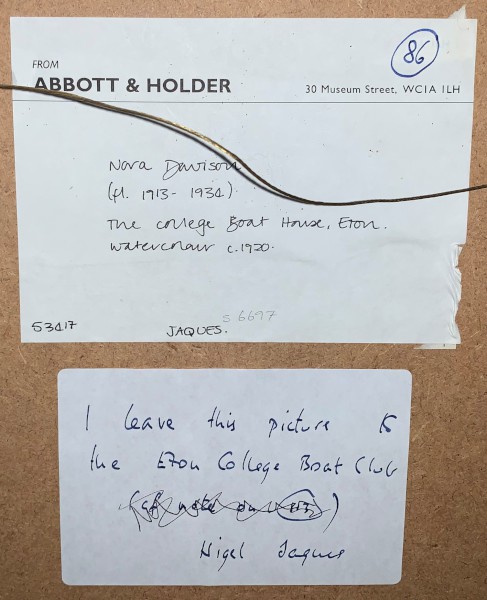 86
FROM
ABBOTT & HOLDER
30 Museum Street, WC1A 1LH
Nora Davison
(fl. 1913 - 1934)
The college Boat House, Eton.
watercolour c.1920.
S 6697
53417
JAQUES.
I leave this picture to
the Eton College Boat Club
Nigel Jaques